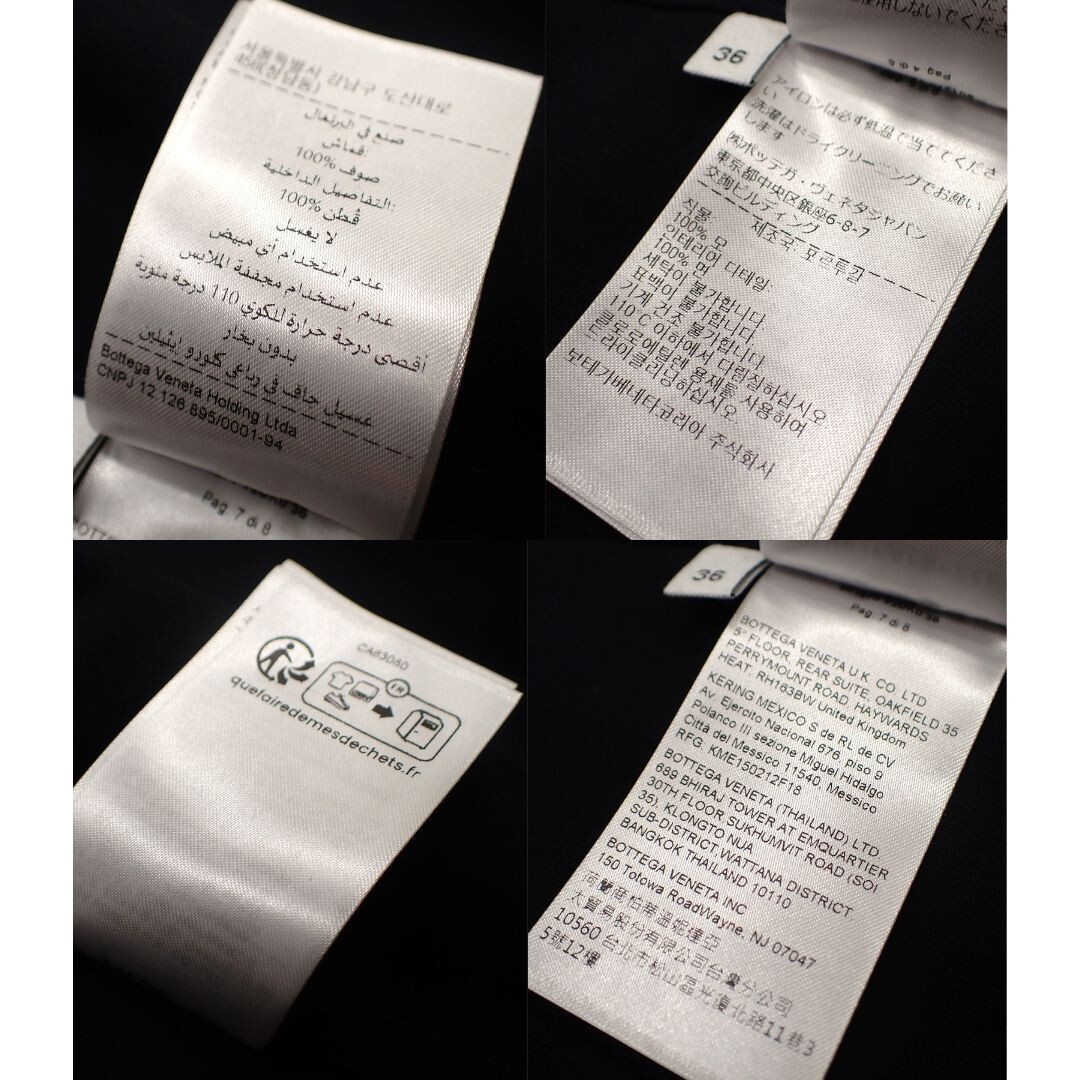 서울특별시 강남구 도산대로
458(청담동)
صنع في البرتغال
قماش:
صوف 100%
التفاصيل الداخلية:
قطن 100%
لا يغسل
عدم استخدام أي مبيض
عدم استخدام مجففة الملابس
أقصى درجة حرارة للكوي 110 درجة مئوية
بدون بخار
غسيل جاف في رباعي كلورو إيثيلين
Bottega Veneta Holding Ltda
CNPJ 12.126.895/0001-94
36
Pag. 7 di 8
36
使用しないでくださ
Pag 4 di 8
アイロンは必ず低温で当ててくださ
い
洗濯はドライクリーニングでお願い
します
㈱ボッテガ・ヴェネタジャパン
東京都中央区銀座6-8-7
交詢ビルディング
제조국: 포르투갈
직물:
100% 모
인테리어 디테일:
100% 면
세탁이 불가합니다
표백이 불가합니다
기계 건조 불가합니다
110 C 이하에서 다림질하십시오
클로로에틸렌 용제를 사용하여
드라이클리닝하십시오.
보테가베네타코리아 주식회사
CA63080
FR
quefairedemesdechets.fr
36
Pag. 7 di 8
BOTTEGA VENETA U.K. CO. LTD
5° FLOOR, REAR SUITE, OAKFIELD 35
PERRYMOUNT ROAD, HAYWARDS
HEAT, RH163BW United Kingdom
KERING MEXICO S de RL de CV
Av. Ejercito Nacional 676, piso 9
Polanco III sezione Miguel Hidalgo
Città del Messico 11540, Messico
RFG. KME150212F18
BOTTEGA VENETA (THAILAND) LTD.
689 BHIRAJ TOWER AT EMQUARTIER
30TH FLOOR SUKHUMVIT ROAD (SOI
35), KLONGTO NUA
SUB-DISTRICT WATTANA DISTRICT
BANGKOK THAILAND 10110
BOTTEGA VENETA INC
150 Totowa RoadWayne, NJ 07047
荷蘭商柏蒂溫妮達亞
太貿易股份有限公司台灣分公司
10560 台北市松山區光復北路11巷3
5號12樓